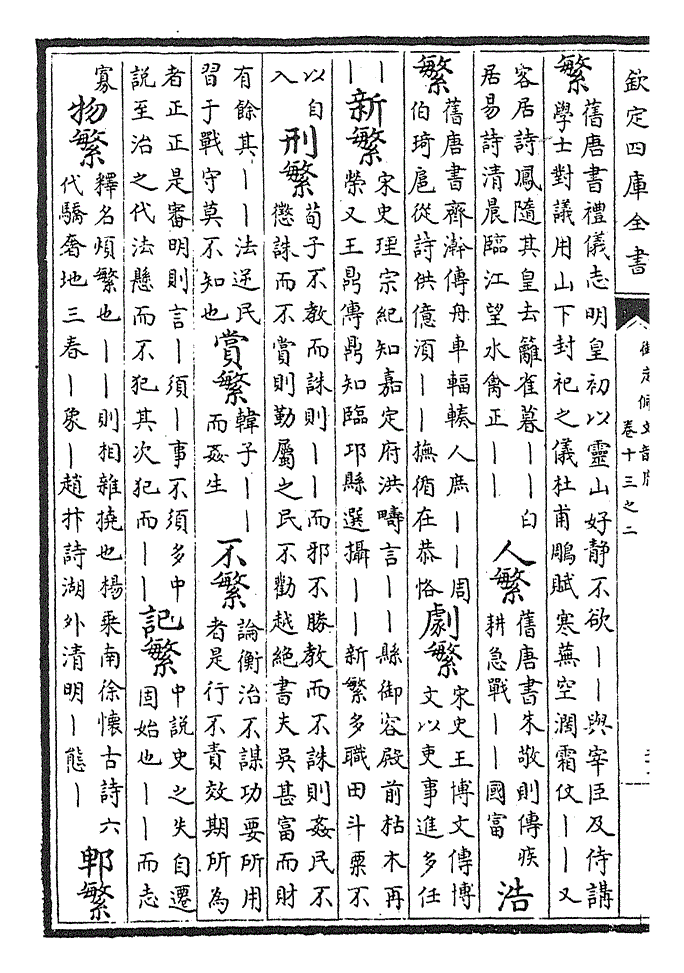 欽定四庫全書
御定佩文韻府
卷十三之二
繁
舊唐書禮儀志明皇初以靈山好静不欲――與宰臣及侍講
學士對議用山下封祀之儀杜甫鵰賦寒蕪空濶霜仗――又
容居詩鳳隨其皇去籬雀暮――白
居易詩清晨臨江望水禽正――
人繁
舊唐書朱敬則傳疾
耕急戰――國富
浩
繁
舊唐書齊澣傳舟車輻輳人庶――周
伯琦扈從詩供億湏――撫循在恭恪
劇繁
宋史王博文傳博
文以吏事進多任
―
―
新繁
宋史理宗紀知嘉定府洪疇言――縣御容殿前枯木再
榮又王鼎傳鼎知臨邛縣選攝――新繁多職田斗粟不
以自
入
刑繁
荀子不教而誅則――而邪不勝教而不誅則姦民不
懲誅而不賞則勤屬之民不勸越絶書夫吳甚富而財
有餘其――法逆民
習于戰守莫不知也
賞繁
韓子――
而姦生
不繁
論衡治不謀功要所用
者是行不責效期所為
者正正是審明則言―須―事不須多中
説至治之代法懸而不犯其次犯而――
記繁
中説史之失自遷
固始也――而志
寡
物繁
釋名煩繁也――則相雜撓也楊乘南徐懷古詩六
代驕奢地三春―象―趙抃詩湖外清明―態―
郫繁